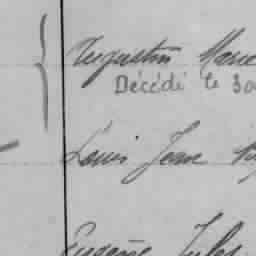 Augustin Marie
Décédé le 30
Louis Jean
Eugène Jules